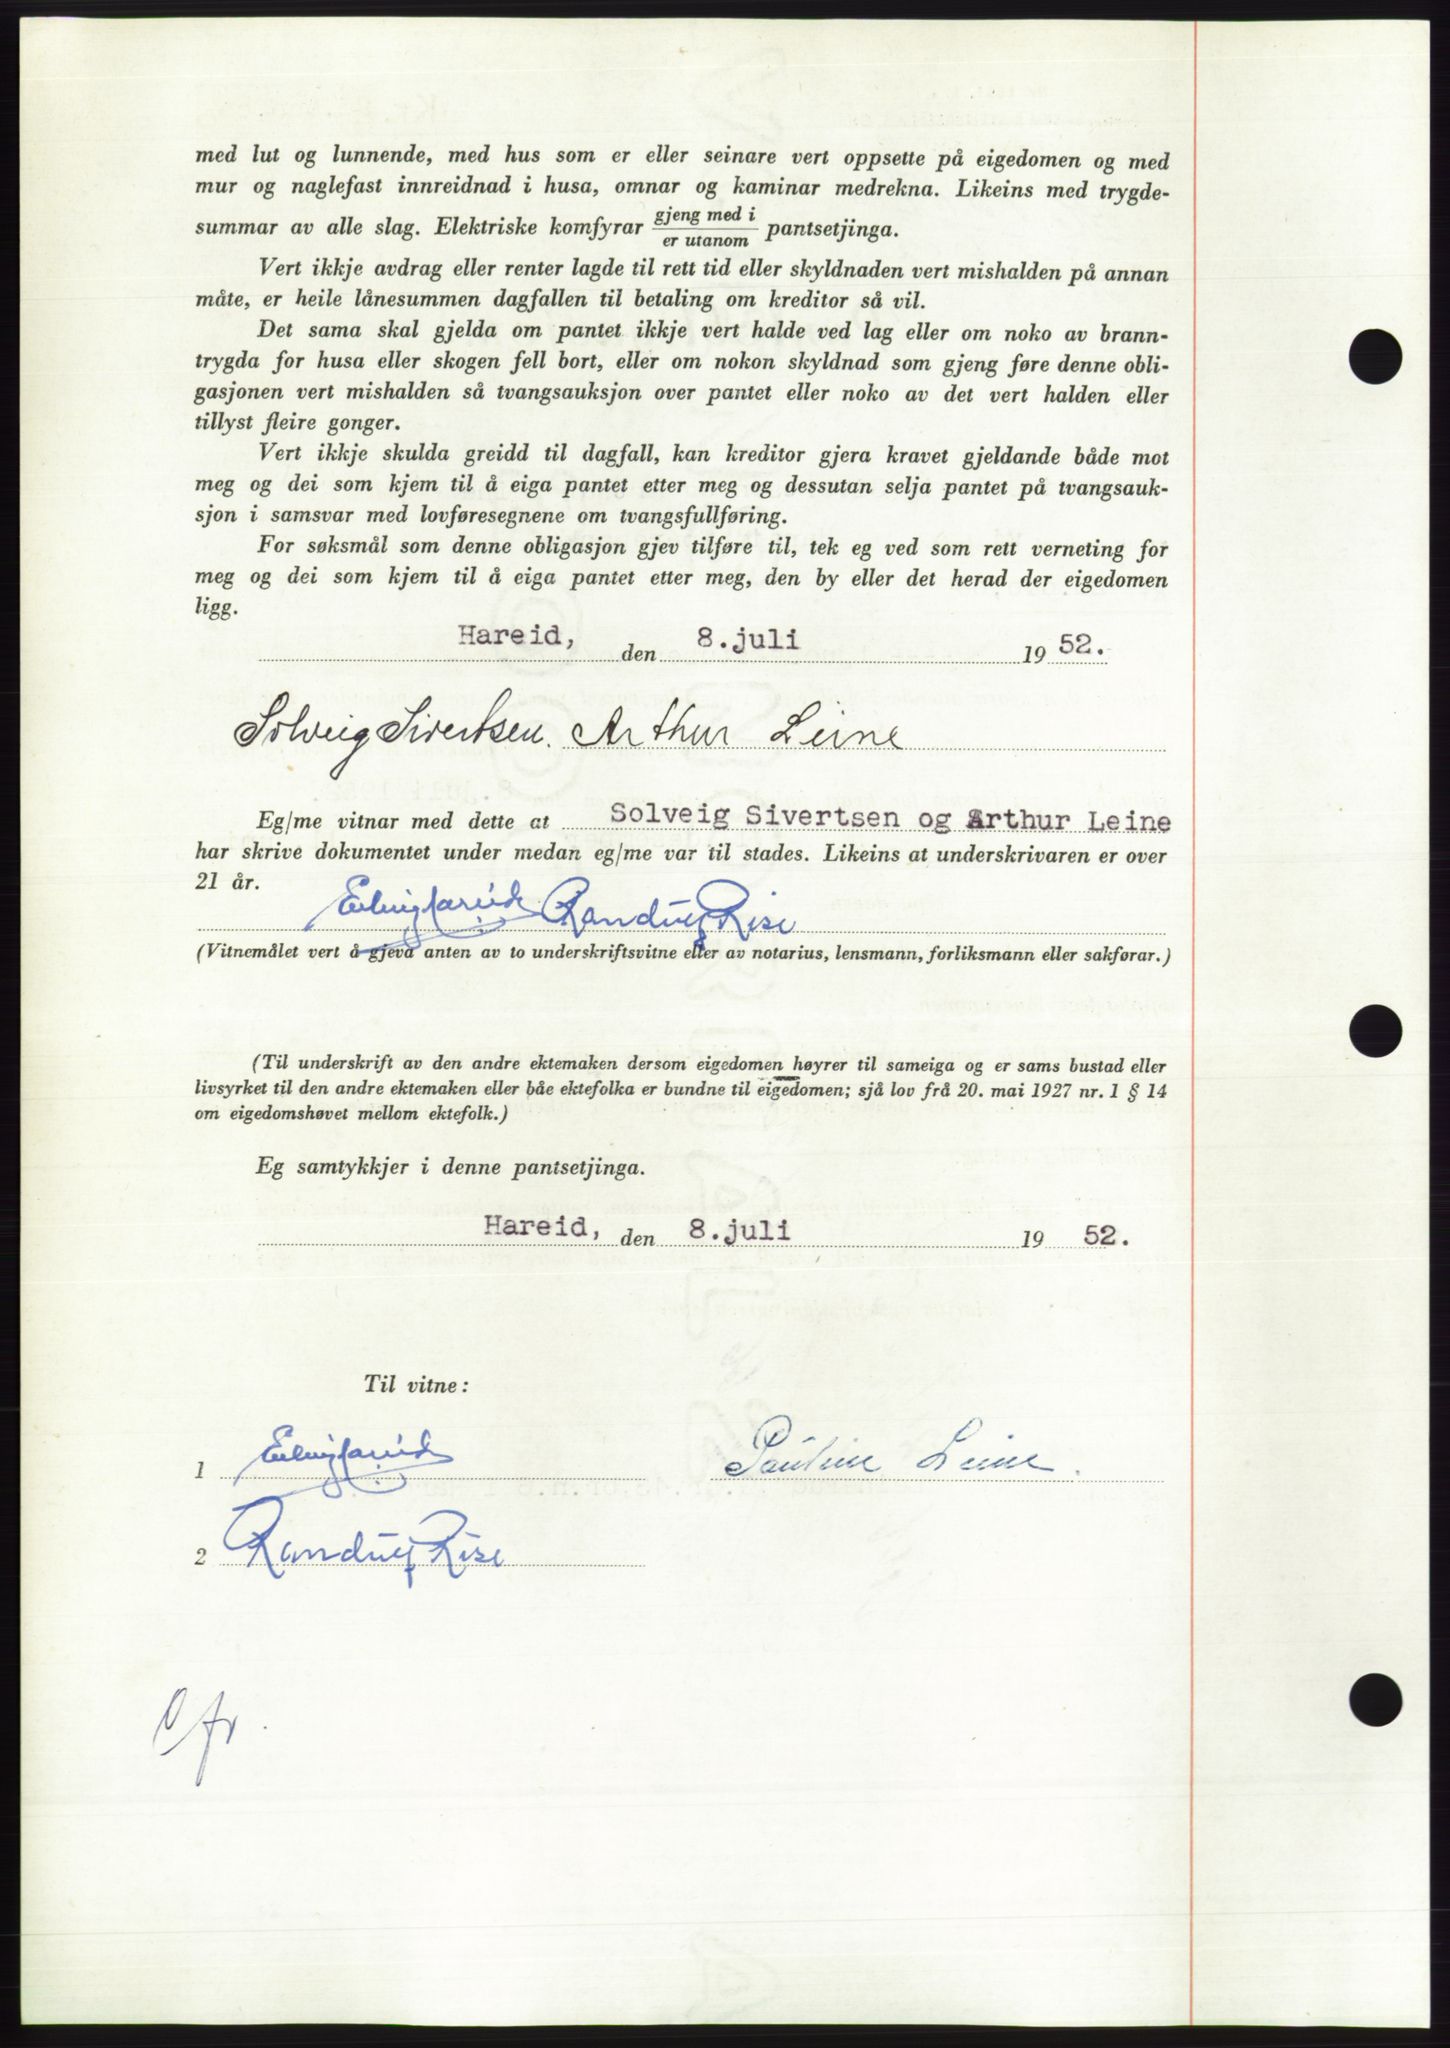 med lut og lunnende, med hus som er eller seinare vert oppsette på eigedomen og med
mur og naglefast innreidnad i husa, omnar og kaminar medrekna. Likeins med trygde-
summar av alle slag. Elektriske komfyrar gjeng med i / er utanom pantsetjinga.
Vert ikkje avdrag eller renter lagde til rett tid eller skyldnaden vert mishalden på annan
måte, er heile lånesummen dagfallen til betaling om kreditor så vil.
Det sama skal gjelda om pantet ikkje vert halde ved lag eller om noko av brann-
trygda for husa eller skogen fell bort, eller om nokon skyldnad som gjeng føre denne obli-
gasjonen vert mishalden så tvangsauksjon over pantet eller noko av det vert halden eller
tillyst fleire gonger.
Vert ikkje skulda greidd til dagfall, kan kreditor gjera kravet gjeldande både mot
meg og dei som kjem til å eiga pantet etter meg og dessutan selja pantet på tvangsauk-
sjon i samsvar med lovføresegnene om tvangsfullføring.
For søksmål som denne obligasjon gjev tilføre til, tek eg ved som rett verneting for
meg og dei som kjem til å eiga pantet etter meg, den by eller det herad der eigedomen
ligg.
Hareid, den 8.juli 19 52.
Solveig Sivertsen. Arthur Leine
Eg/me vitnar med dette at Solveig Sivertsen og Arthur Leine
har skrive dokumentet under medan eg/me var til stades. Likeins at underskrivaren er over
21 år.
Randúig Rise
(Vitnemålet vert å gjeva anten av to underskriftsvitne eller av notarius, lensmann, forliksmann eller sakførar.)
(Til underskrift av den andre ektemaken dersom eigedomen høyrer til sameiga og er sams bustad eller
livsyrket til den andre ektemaken eller båe ektefolka er bundne til eigedomen; sjå lov frå 20. mai 1927 nr. 1 § 14
om eigedomshøvet mellom ektefolk.)
Eg samtykkjer i denne pantsetjinga.
Hareid, den 8.juli 19 52.
Til vitne:
1 Pauline Leine.
2 Randúig Rise